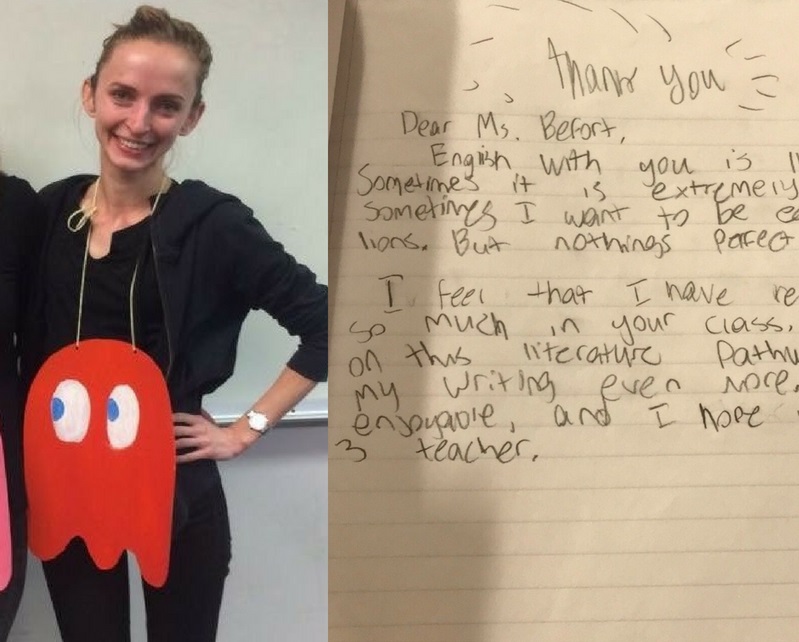 Thank you
Dear Ms. Befort,
English with you is li
Sometimes it is extremely
sometimes I want to be ea
lions. But nothings perfect
I feel that I have re
so much in your class.
on this literature Pathw
my writing even more.
enjoyable, and I hope
3 teacher.